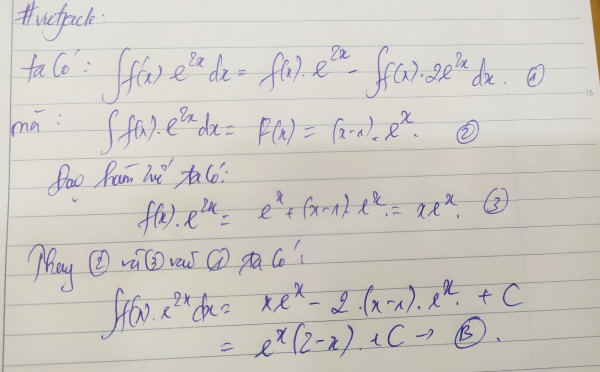 #vietjack:
ta có: ∫f'(x).e^{2x}dx = f(x).e^{2x} - ∫f(x).2e^{2x}dx. ①
mà: ∫f(x).e^{2x}dx = F(x) = (x-1).e^x. ②
Đạo hàm 2 vế ta có:
f(x).e^{2x} = e^x + (x-1).e^x = xe^x. ③
Thay ② và ③ vào ① ta có:
∫f'(x).e^{2x}dx = xe^x - 2.(x-1).e^x. + C
= e^x(2-x).+C → Ⓑ.